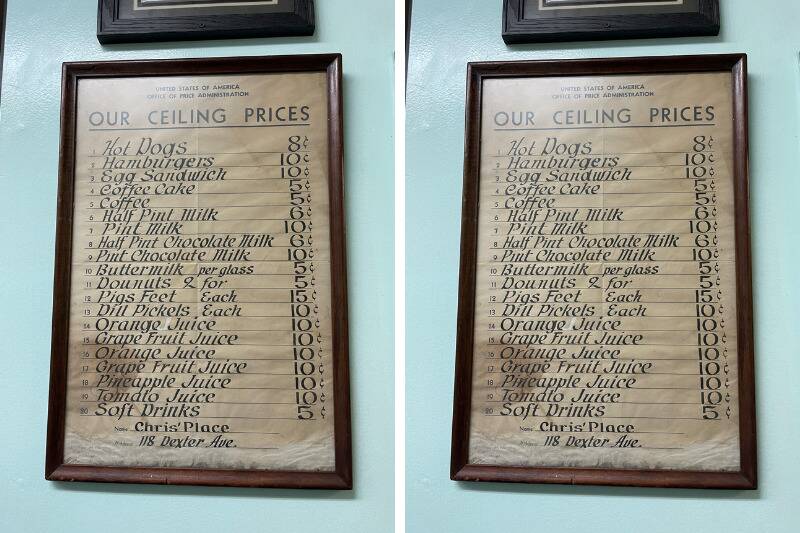 UNITED STATES OF AMERICA
OFFICE OF PRICE ADMINISTRATION
OUR CEILING PRICES
1 Hot Dogs 8¢
2 Hamburgers 10¢
3 Egg Sandwich 10¢
4 Coffee Cake 5¢
5 Coffee 5¢
6 Half Pint Milk 6¢
7 Pint Milk 10¢
8 Half Pint Chocolate Milk 6¢
9 Pint Chocolate Milk 10¢
10 Buttermilk per glass 5¢
11 Dounuts 2 for 5¢
12 Pigs Feet Each 15¢
13 Dill Pickels Each 10¢
14 Orange Juice 10¢
15 Grape Fruit Juice 10¢
16 Orange Juice 10¢
17 Grape Fruit Juice 10¢
18 Pineapple Juice 10¢
19 Tomato Juice 10¢
20 Soft Drinks 5¢
Name Chris' Place
Address 118 Dexter Ave.
UNITED STATES OF AMERICA
OFFICE OF PRICE ADMINISTRATION
OUR CEILING PRICES
1 Hot Dogs 8¢
2 Hamburgers 10¢
3 Egg Sandwich 10¢
4 Coffee Cake 5¢
5 Coffee 5¢
6 Half Pint Milk 6¢
7 Pint Milk 10¢
8 Half Pint Chocolate Milk 6¢
9 Pint Chocolate Milk 10¢
10 Buttermilk per glass 5¢
11 Dounuts 2 for 5¢
12 Pigs Feet Each 15¢
13 Dill Pickels Each 10¢
14 Orange Juice 10¢
15 Grape Fruit Juice 10¢
16 Orange Juice 10¢
17 Grape Fruit Juice 10¢
18 Pineapple Juice 10¢
19 Tomato Juice 10¢
20 Soft Drinks 5¢
Name Chris' Place
Address 118 Dexter Ave.